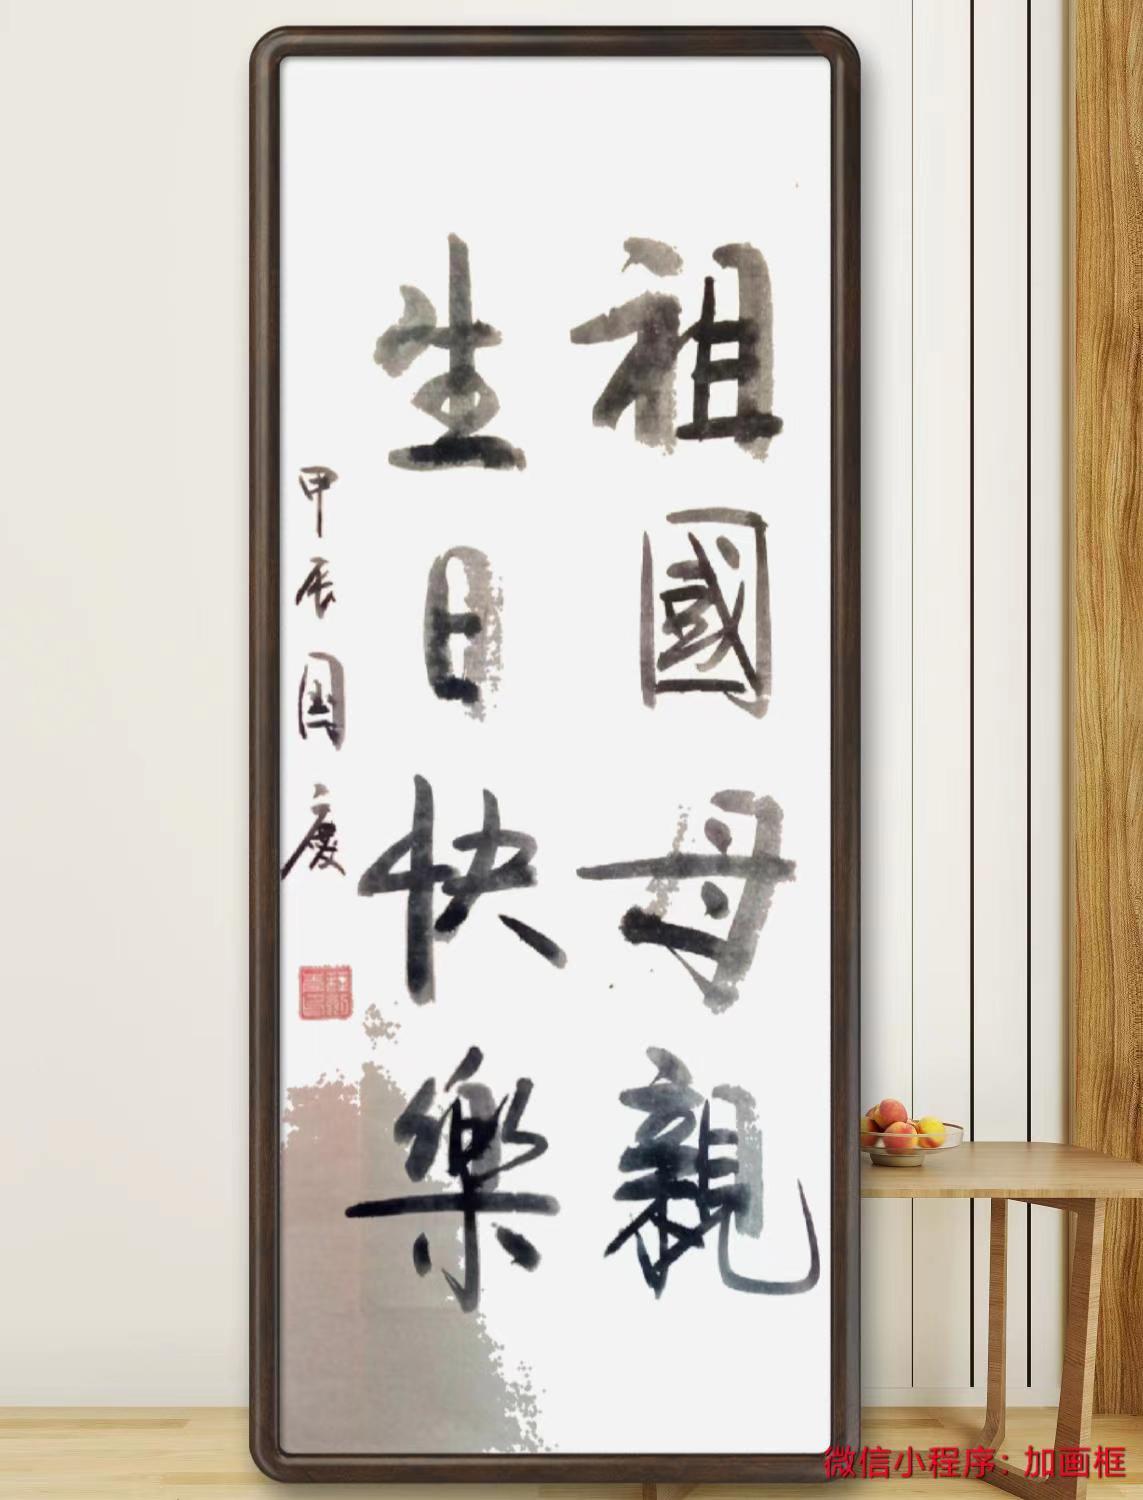 祖國母親
生日快樂
甲辰国慶
微信小程序：加画框